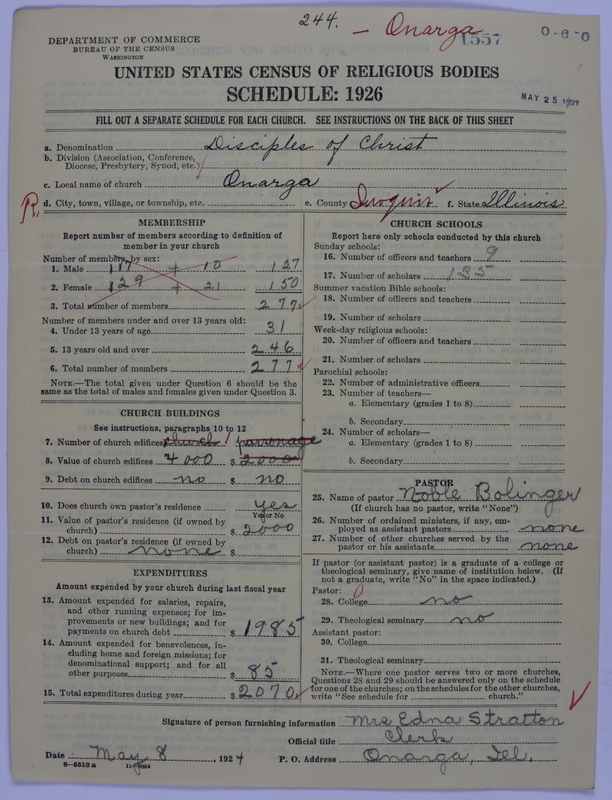 244. — Onarga
1557
0-6-0
DEPARTMENT OF COMMERCE
BUREAU OF THE CENSUS
WASHINGTON
MAY 25 1927
UNITED STATES CENSUS OF RELIGIOUS BODIES
SCHEDULE: 1926
FILL OUT A SEPARATE SCHEDULE FOR EACH CHURCH. SEE INSTRUCTIONS ON THE BACK OF THIS SHEET
a. Denomination Disciples of Christ
b. Division (Association, Conference, Diocese, Presbytery, Synod, etc.)
c. Local name of church Onarga
R. d. City, town, village, or township, etc. e. County Iroquois f. State Illinois
MEMBERSHIP
Report number of members according to definition of
member in your church
Number of members by sex:
1. Male 117 + 10 127
2. Female 129 + 21 150
3. Total number of members 277
Number of members under and over 13 years old:
4. Under 13 years of age 31
5. 13 years old and over 246
6. Total number of members 277
NOTE.—The total given under Question 6 should be the
same as the total of males and females given under Question 3.
CHURCH BUILDINGS
See instructions, paragraphs 10 to 12
7. Number of church edifices church 1 parsonage
8. Value of church edifices 4000 $ 2000
9. Debt on church edifices no $ no
10. Does church own pastor's residence yes
Yes or No
11. Value of pastor's residence (if owned by
church) $ 2000
12. Debt on pastor's residence (if owned by
church) none $
EXPENDITURES
Amount expended by your church during last fiscal year
13. Amount expended for salaries, repairs,
and other running expenses; for im-
provements or new buildings; and for
payments on church debt $ 1985
14. Amount expended for benevolences, in-
cluding home and foreign missions; for
denominational support; and for all
other purposes $ 85
15. Total expenditures during year $ 2070
CHURCH SCHOOLS
Report here only schools conducted by this church
Sunday schools:
16. Number of officers and teachers 9
17. Number of scholars 135
Summer vacation Bible schools:
18. Number of officers and teachers
19. Number of scholars
Week-day religious schools:
20. Number of officers and teachers
21. Number of scholars
Parochial schools:
22. Number of administrative officers
23. Number of teachers—
a. Elementary (grades 1 to 8)
b. Secondary
24. Number of scholars—
a. Elementary (grades 1 to 8)
b. Secondary
PASTOR
25. Name of pastor Noble Bolinger
(If church has no pastor, write "None")
26. Number of ordained ministers, if any, em-
ployed as assistant pastors none
27. Number of other churches served by the
pastor or his assistants none
If pastor (or assistant pastor) is a graduate of a college or
theological seminary, give name of institution below. (If
not a graduate, write "No" in the space indicated.)
Pastor: 0
28. College no
29. Theological seminary no
Assistant pastor:
30. College
31. Theological seminary
NOTE.—Where one pastor serves two or more churches,
Questions 28 and 29 should be answered only on the schedule
for one of the churches; on the schedules for the other churches,
write "See schedule for church."
Signature of person furnishing information Mrs Edna Stratton
Official title Clerk
Date May 8, 1924 P. O. Address Onarga, Ill.
8-5518 a